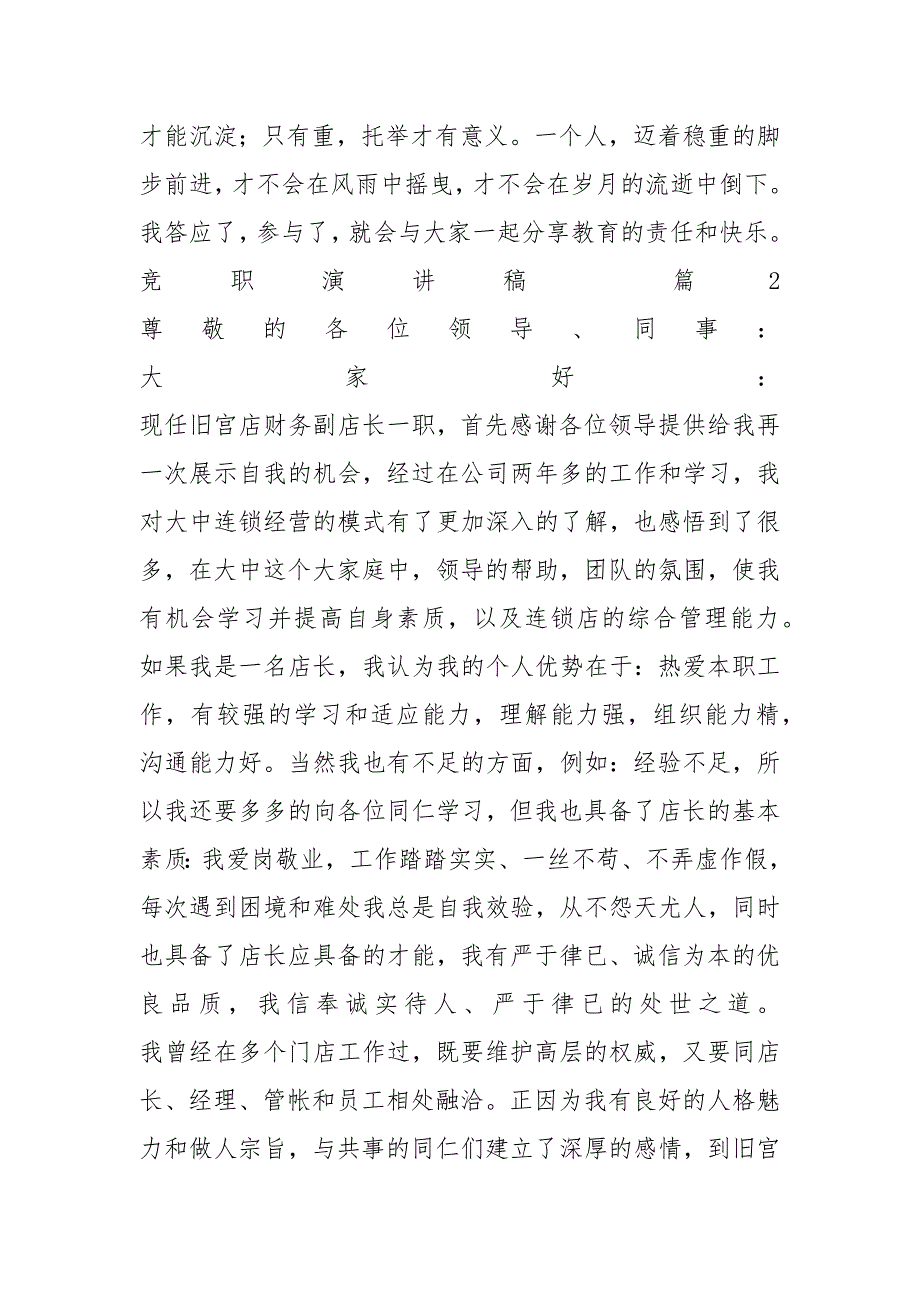 才能沉淀；只有重，托举才有意义。一个人，迈着稳重的脚
步前进，才不会在风雨中摇曳，才不会在岁月的流逝中倒下。
我答应了，参与了，就会与大家一起分享教育的责任和快乐。
竞职演讲稿 篇2
尊敬的各位领导、同事：
大家好：
现任旧宫店财务副店长一职，首先感谢各位领导提供给我再
一次展示自我的机会，经过在公司两年多的工作和学习，我
对大中连锁经营的模式有了更加深入的了解，也感悟到了很
多，在大中这个大家庭中，领导的帮助，团队的氛围，使我
有机会学习并提高自身素质，以及连锁店的综合管理能力。
如果我是一名店长，我认为我的个人优势在于：热爱本职工
作，有较强的学习和适应能力，理解能力强，组织能力精，
沟通能力好。当然我也有不足的方面，例如：经验不足，所
以我还要多多的向各位同仁学习，但我也具备了店长的基本
素质：我爱岗敬业，工作踏踏实实、一丝不苟、不弄虚作假，
每次遇到困境和难处我总是自我效验，从不怨天尤人，同时
也具备了店长应具备的才能，我有严于律已、诚信为本的优
良品质，我信奉诚实待人、严于律已的处世之道。
我曾经在多个门店工作过，既要维护高层的权威，又要同店
长、经理、管帐和员工相处融洽。正因为我有良好的人格魅
力和做人宗旨，与共事的同仁们建立了深厚的感情，到旧宫